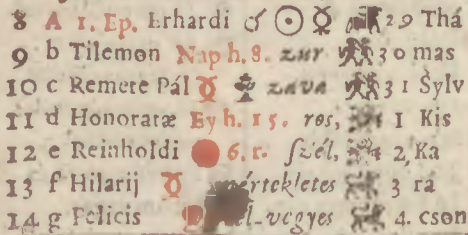 8 A 1. Ep. Erhardi ☌ ☉ ☿ 29 Thá
9 b Tilemon Nap h. 8. zur 30 mas
10 c Remete Pál zavá 31 Sylv
11 d Honoratæ Ey h. 15. ros, 1 Kis
12 e Reinholdi 6. r. ſzél, 2 Ka
13 f Hilarij mértekletes 3 rá
14 g Felicis vegyes 4. cson